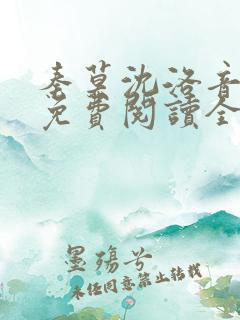 秦墓沈洛音
免費閱讀全
墨殤兮
未經同意禁止轉載